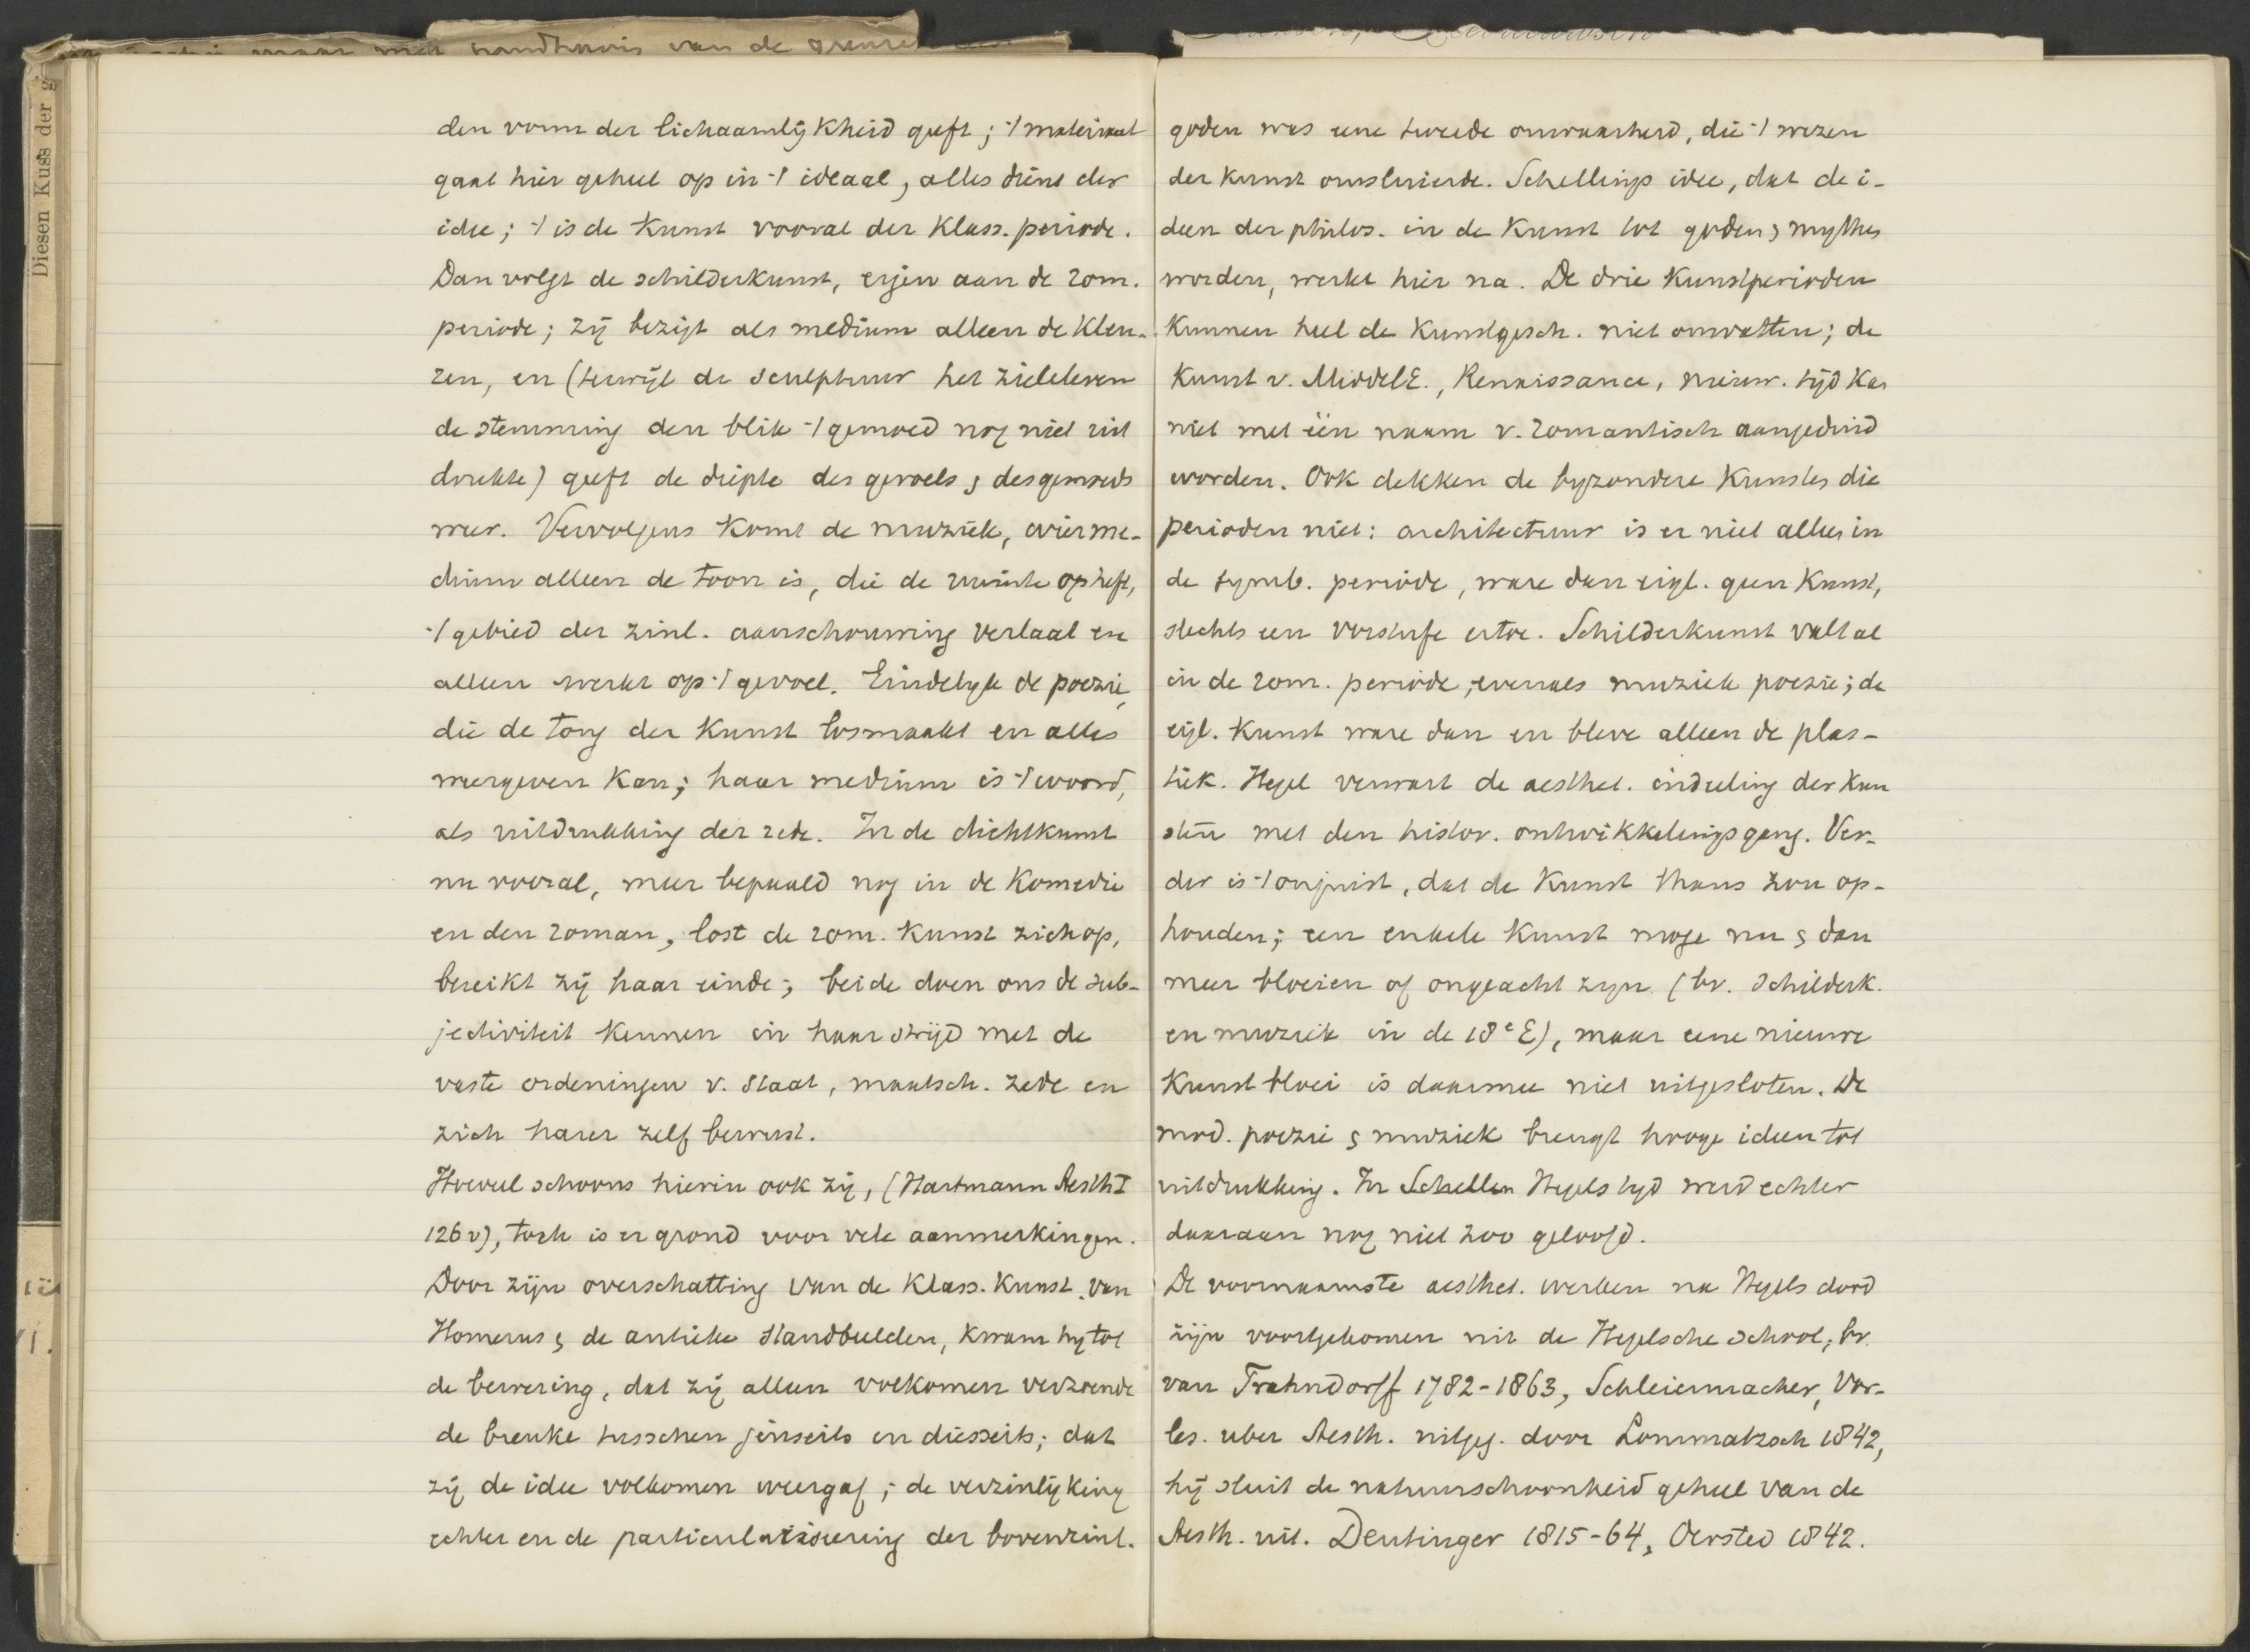 Diesen Kuss der g
den vorm der lichaamlijkheid geeft; 't materiaal
gaat hier geheel op in 't ideaal, alles dient der
idee; 't is de kunst vooral der klass. periode.
Dan volgt de schilderkunst, eigen aan de rom.
periode; zij bezigt als medium alleen de kleu-
ren, en (terwijl de sculptuur het zieleleven
de stemming den blik 't gemoed nog niet uit
drukte) geeft de diepte des gevoels & des gemoeds
weer. Vervolgens komt de muziek, wier me-
dium alleen de toon is, die de ruimte opheft,
't gebied der zinl. aanschouwing verlaat en
alleen werkt op 't gevoel. Eindelyk de poezie,
die de tong der kunst losmaakt en alles
weergeven kan; haar medium is 't woord,
als uitdrukking der rede. In de dichtkunst
nu vooral, meer bepaald nog in de komedie
en den roman, lost de rom. kunst zich op,
bereikt zij haar einde; beide doen ons de sub-
jectiviteit kennen in haar strijd met de
vaste ordeningen v. staat, maatsch. zede en
zich harer zelf bewust.
Hoeveel schoons hierin ook zij, (Hartmann Aesth I
126 v), toch is er grond voor vele aanmerkingen.
Door zijn overschatting van de klass. kunst, van
Homerus & de antieke standbeelden, kwam hy tot
de bewering, dat zij alleen volkomen verzoende
de breuke tusschen jenseits en diesseits; dat
zij de idee volkomen weergaf; de verzinlijking
echter en de particularisering der bovenzinl.
goden was eene tweede onwaarheid, die 't wezen
der kunst omsluierde. Schellings idee, dat de i-
deen der philos. in de kunst tot goden & mythes
worden, werkt hier na. De drie kunstperioden
kunnen heel de kunstgesch. niet omvatten; de
kunst v. MiddelE., Renaissance, nieuw. tijd kan
niet met één naam v. romantisch aangeduid
worden. Ook dekken de byzondere kunsten die
perioden niet: architectuur is er niet alleen in
de symb. periode, ware dan eigl. geen kunst,
slechts een voorstufe ertoe. Schilderkunst valt al
in de rom. periode, evenals muziek poezie; de
eigl. kunst ware dan en bleve alleen de plas-
tiek. Hegel verwart de aesthet. indeeling der kun
sten met den histor. ontwikkelingsgang. Ver-
der is 't onjuist, dat de kunst thans zou op-
houden; een enkele kunst moge nu & dan
meer bloeien of ongeacht zyn (bv. schilderk.
en muziek in de 18e E), maar eene nieuwe
kunstbloei is daarmee niet uitgesloten. De
mod. poezie & muziek brengt hooge ideen tot
uitdrukking. In Schellin Hegels tyd werd echter
daaraan nog niet zoo geloofd.
De voornaamste aesthet. werken na Hegels dood
zijn voortgekomen uit de Hegelsche school; bv.
van Trahndorff 1782-1863, Schleiermacher, Vor-
les. uber Aesth. uitgeg. door Lommatzsch 1842,
hij sluit de natuurschoonheid geheel van de
Aesth. uit. Deutinger 1815-64, Oersted 1842.